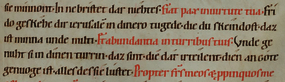 sie minnont. In ne bristet dar niehtes. Fiat pax in uirtute tua. fri
do geskehe dir ierusalem in dinero tugede. diu du skeindost. daz
ist minna unde milti. Et abundantia in turribus tuis. Unde ge
nuht si in dinen turrin. daz sint die dar uuerdent. dien an gote
genuoge ist alles des sie lustet. Propter fratres meos et propinquos me